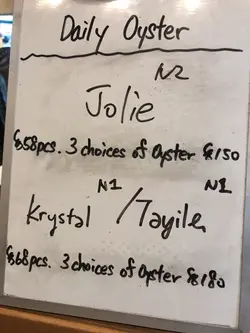 Daily Oyster
N2
Jolie
$58pcs. 3 choices of Oyster $150
N1 N1
Krystal /
$68pcs. 3 choices of Oyster $180